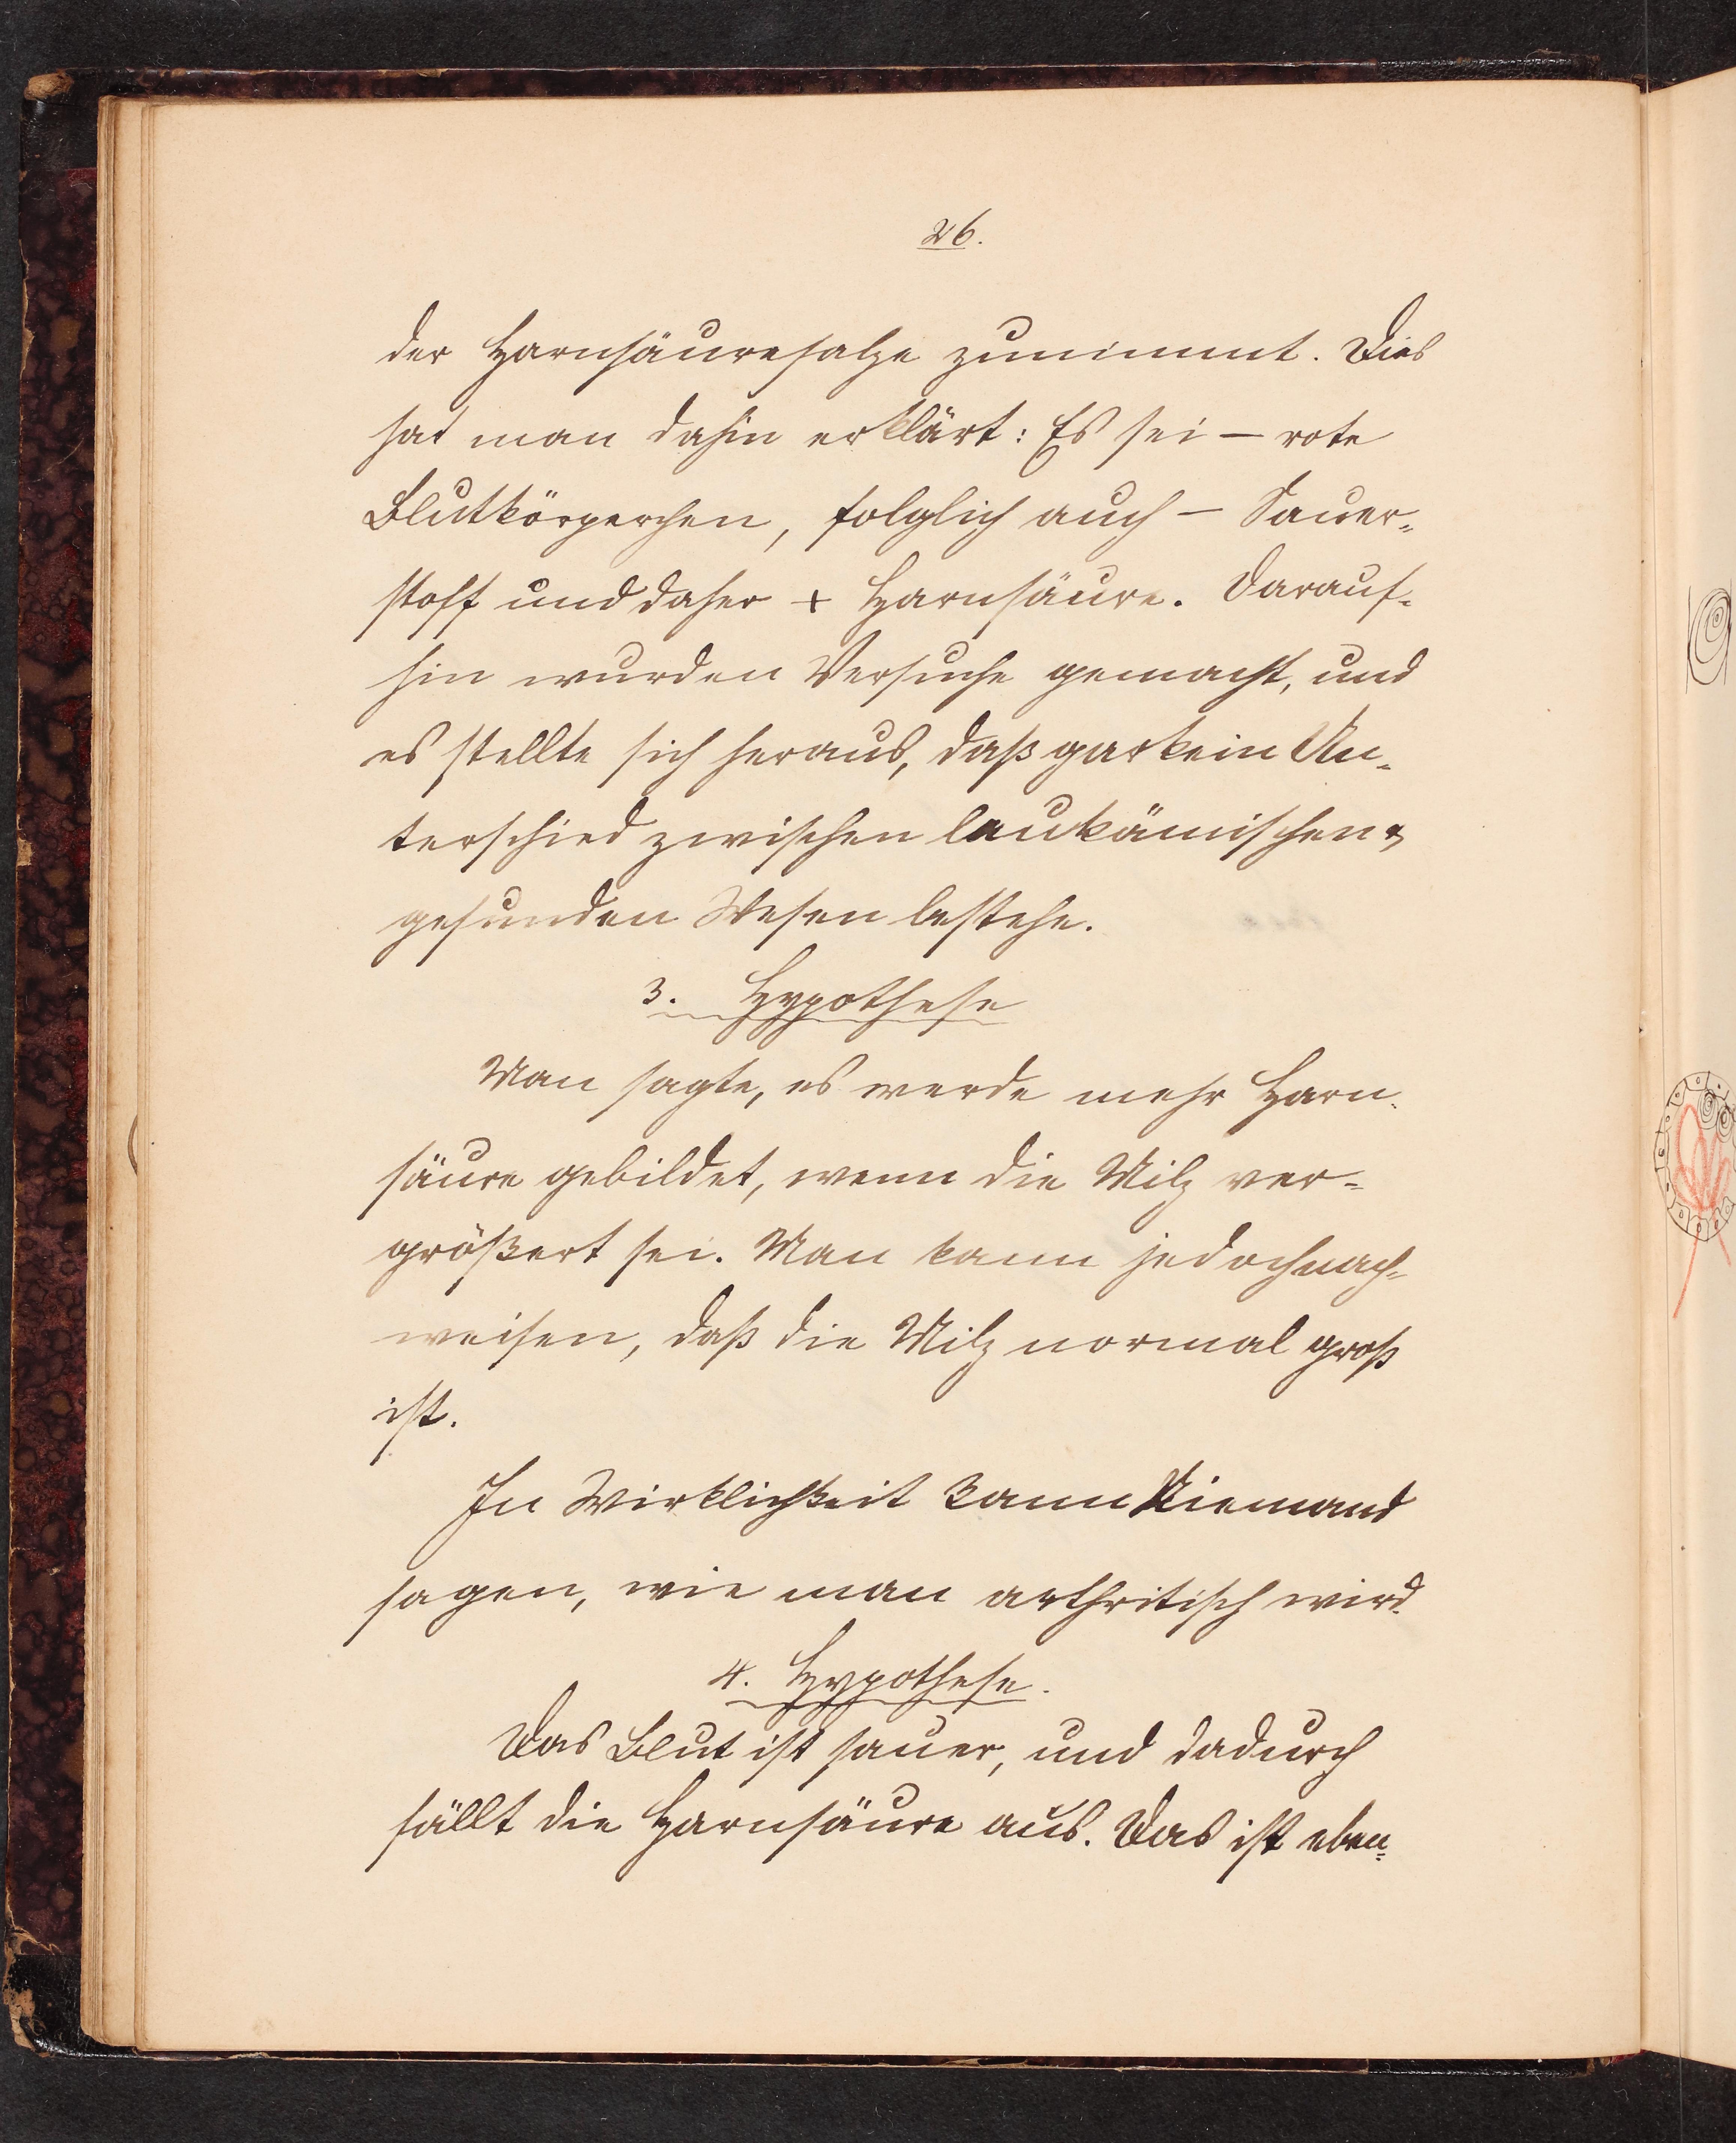 26.
der Harnsäuresalze zunimmt. Dies
hat man dahin erklärt: Es sei – rote
Blutkörperchen, folglich auch – Sauer-
stoff und daher + Harnsäure. Darauf-
hin wurden Versuche gemacht, und
es stellte sich heraus, daß gar kein Un-
terschied zwischen leukämischen &
gesunden Wesen bestehe.
3. Hypothese
Man sagte, es werde mehr Harn-
säure gebildet, wenn die Milz ver-
größert sei. Man kann jedoch nach-
weisen, daß die Milz normal groß
ist.
In Wirklichkeit kann Niemand
sagen, wie man arthritisch wird.
4. Hypothese.
Das Blut ist sauer, und dadurch
fällt die Harnsäure aus. Das ist eben-